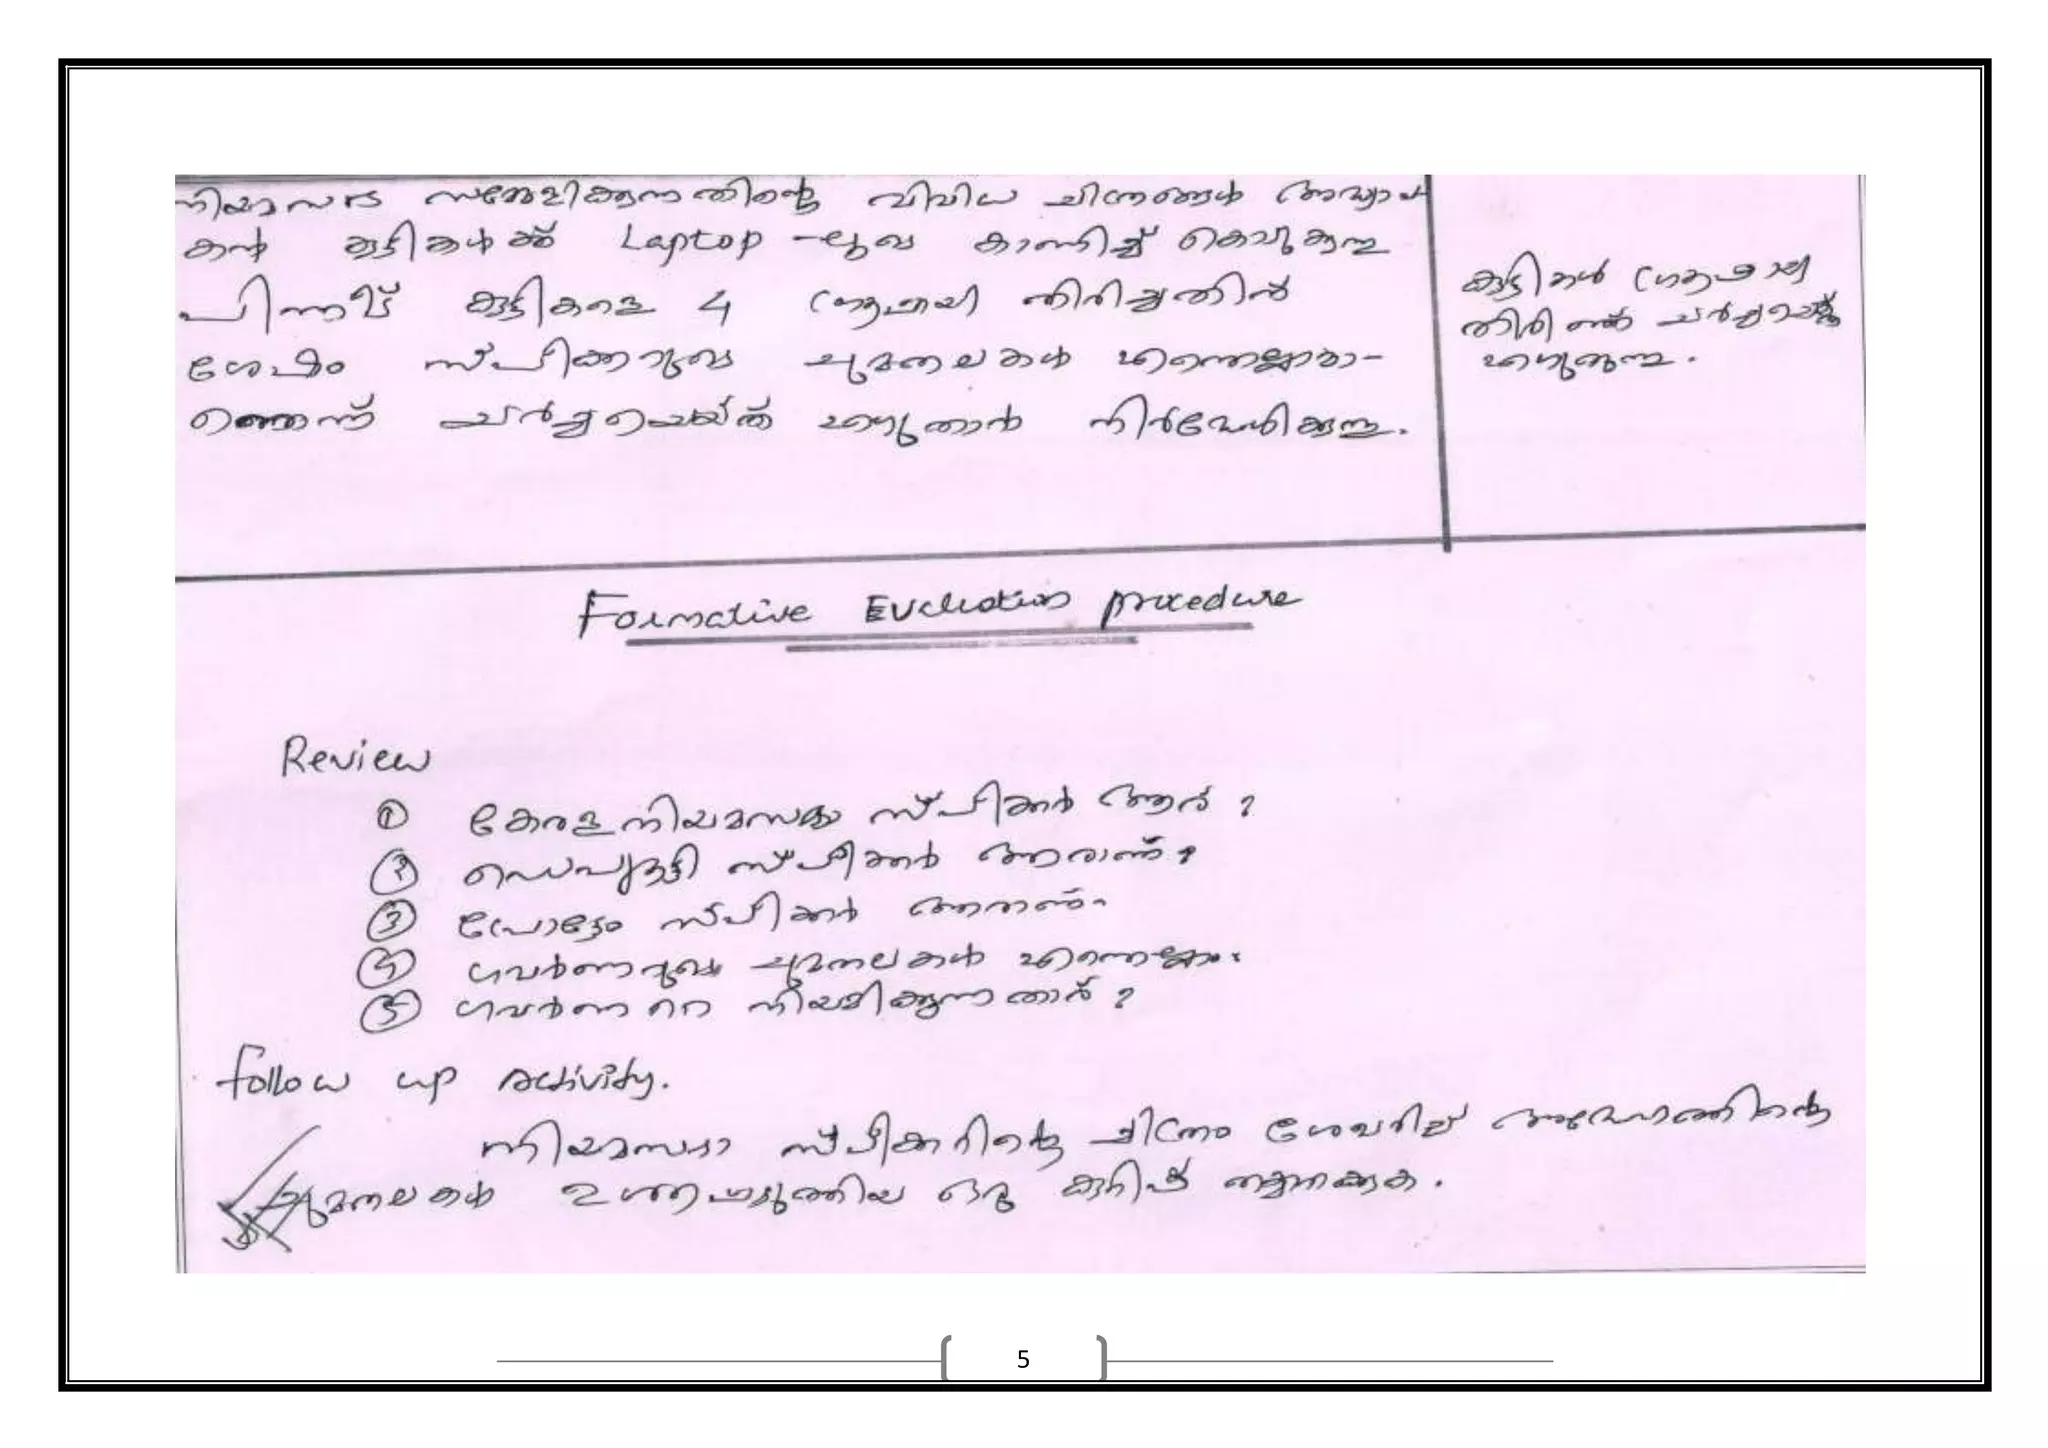 നിയമസഭ സമ്മേളിക്കുന്നതിന്റെ വിവിധ ചിത്രങ്ങൾ അദ്ധ്യാപ
കൻ കുട്ടികൾക്ക് Laptop -ലൂടെ കാണിച്ച് കൊടുക്കുന്നു
പിന്നീട് കുട്ടികളെ 4 ഗ്രൂപ്പായി തിരിച്ചതിൻ
ശേഷം സ്പീക്കറുടെ ചുമതലകൾ എന്തെല്ലാമാ-
ണെന്ന് ചർച്ചചെയ്ത് എഴുതാൻ നിർദേശിക്കുന്നു.
കുട്ടികൾ ഗ്രൂപ്പായി
തിരിഞ്ഞ് ചർച്ചചെയ്തു
എഴുതുന്നു.
Formative Evaluation procedure
Review
① കേരള നിയമസഭാ സ്പീക്കർ ആര് ?
② ഡെപ്യൂട്ടി സ്പീക്കർ ആരാണ് ?
③ പ്രോട്ടേം സ്പീക്കർ ആരാണ്?
④ ഗവർണറുടെ ചുമതലകൾ എന്തെല്ലാം?
⑤ ഗവർണറെ നിയമിക്കുന്നതാര് ?
follow up activity.
നിയമസഭാ സ്പീക്കറിന്റെ ചിത്രം ശേഖരിച്ച് അദ്ദേഹത്തിന്റെ
ചുമതലകൾ ഉൾപ്പെടുത്തിയ ഒരു കുറിപ്പ് തയ്യാറാക്കുക.
5